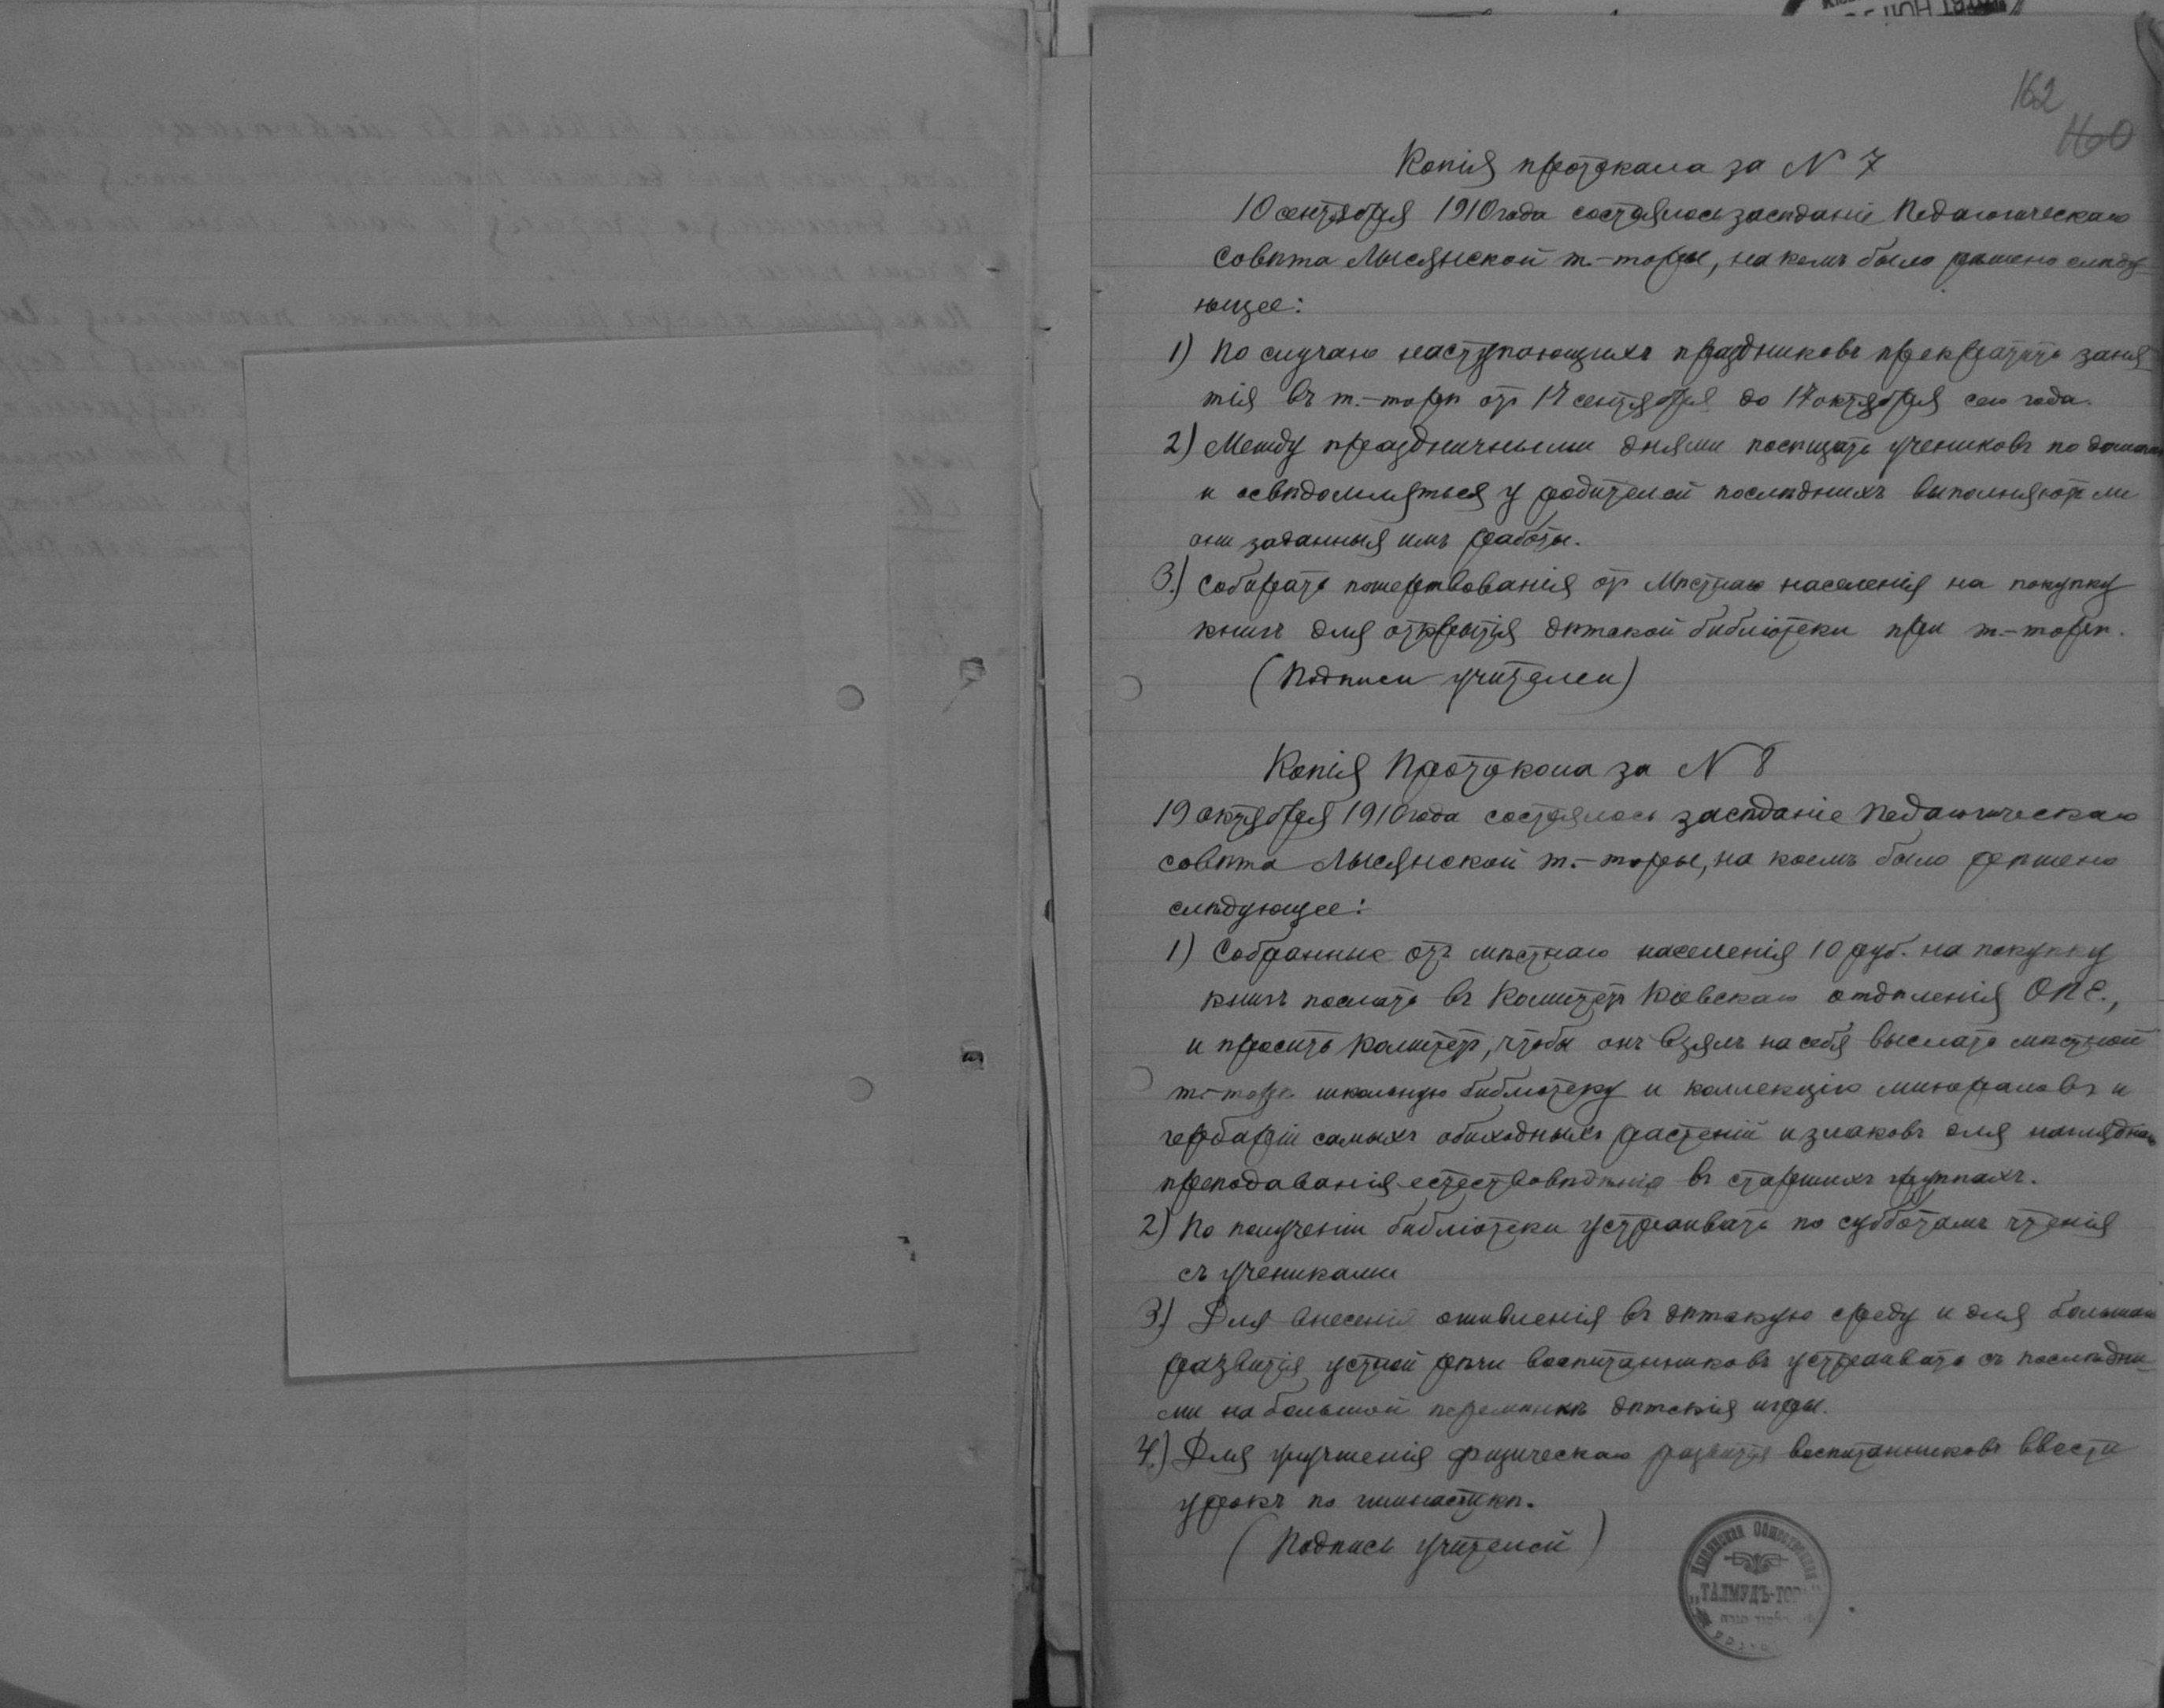 162
Копія протокала за N 7
10 сентября 1910 года состоялось засѣданіе Педагогическаго
Совѣта Лысянской т.-торы, на коемъ было рѣшено слѣду-
ющее:
1) По случаю наступающихъ праздниковъ прекратить заня-
тія въ т.-торѣ отъ 17 сентября до 17 октября сего года.
2) Между праздничными днями посѣщать учениковъ по домамъ
и освѣдомляться у родителей послѣднихъ выполняютъ ли
они заданныя имъ работы.
3.) Собирать пожертвованія отъ Мѣстнаго населенія на покупку
книгъ для открытія дѣтской библіотеки при т.-торѣ.
(Подписи учителей)
Копія Протокола за N 8
19 октября 1910 года состоялось засѣданіе Педагогическаго
совѣта Лысянской т.-торы, на коемъ было рѣшено
слѣдующее:
1) Собранные отъ мѣстнаго населенія 10 руб. на покупку
книгъ послать въ Комитетъ Кіевскаго отдѣленія ОПЕ.,
и просить комитетъ, чтобы онъ взялъ на себя выслать мѣстной
т-торѣ школьную библіотеку и коллекцію минераловъ и
гербарій самыхъ обиходныхъ растеній и злаковъ для нагляднаго
преподаванія естествовѣдѣнія въ старшихъ группахъ.
2) По полученіи библіотеки устраивать по субботамъ чтенія
съ учениками
3.) Для внесенія оживленія въ дѣтскую среду и для большаго
развитія устной рѣчи воспитанниковъ устраивать съ послѣдни-
ми на большой перемѣнкѣ дѣтскія игры.
4.) Для улучшенія физическаго развитія воспитанниковъ ввести
урокъ по гимнастикѣ.
(Подпись учителей)
Лысянская Общественная
"ТАЛМУДЪ-ТОР